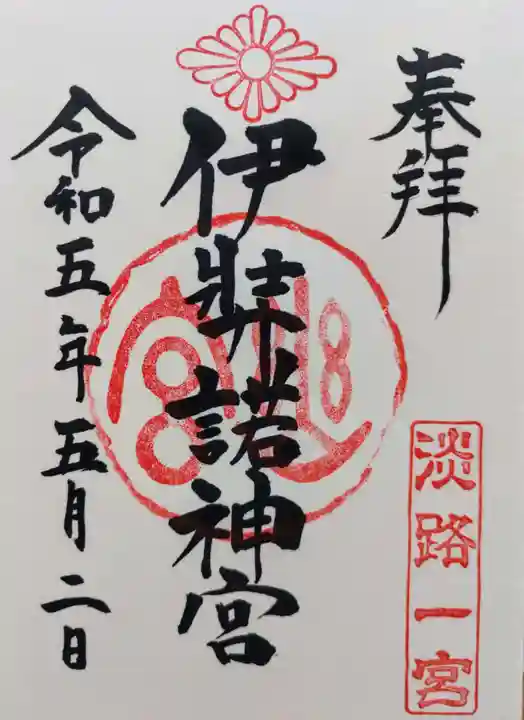 奉拝
淡路一宮
伊弉諾神宮
令和五年五月二日